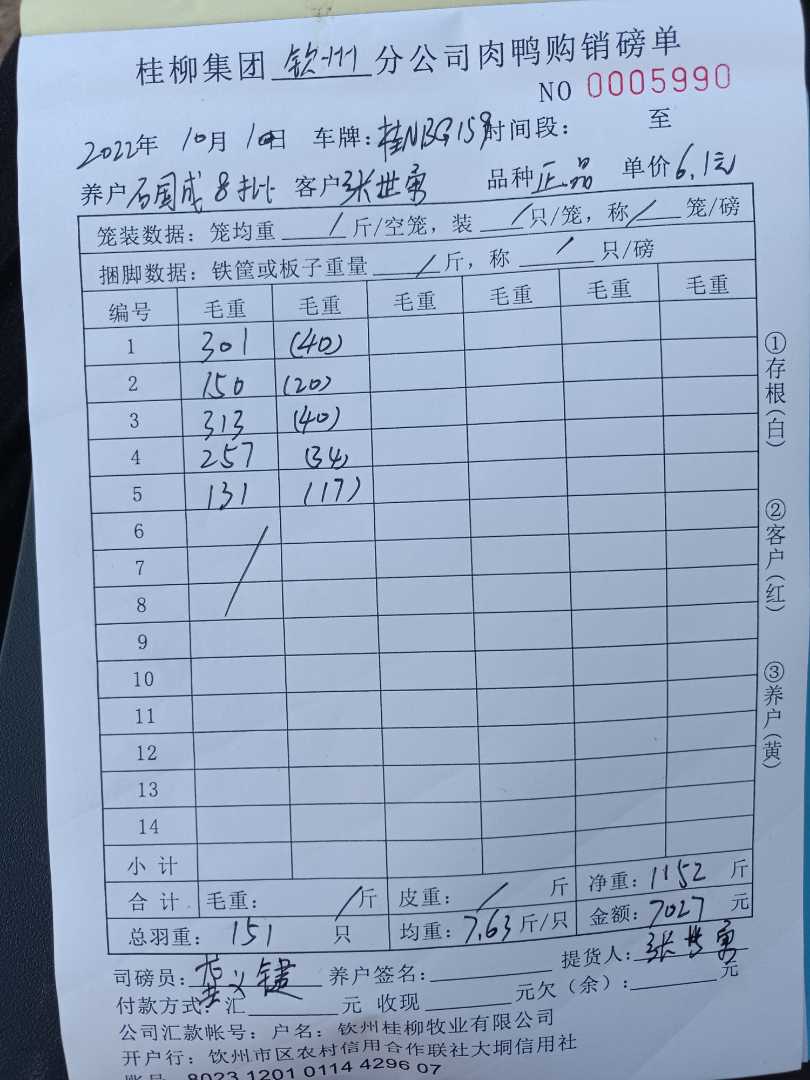 桂柳集团 钦州 分公司肉鸭购销磅单
NO 0005990
2022年 10月 10日 车牌：桂NBG159 时间段： 至
养户 石国成 8批 客户 张世勇 品种 正品 单价 6.1元
笼装数据：笼均重 / 斤/空笼，装 / 只/笼，称 / 笼/磅
捆脚数据：铁筐或板子重量 / 斤，称 / 只/磅
编号 毛重 毛重 毛重 毛重 毛重 毛重
1 301 (40)
2 150 (20)
3 313 (40)
4 257 (34)
5 131 (17)
6
7 /
8
9
10
11
12
13
14
小计
合计 毛重： / 斤 皮重： / 斤 净重：1152 斤
总羽重： 151 只 均重：7.63 斤/只 金额：7027 元
司磅员： 义键 养户签名： 提货人：张世勇
付款方式：汇 元 收现 元欠（余）： 元
公司汇款帐号：户名：钦州桂柳牧业有限公司
开户行：钦州市区农村信用合作联社大垌信用社
账号：8023 1201 0114 4296 07
①存根（白）
②客户（红）
③养户（黄）